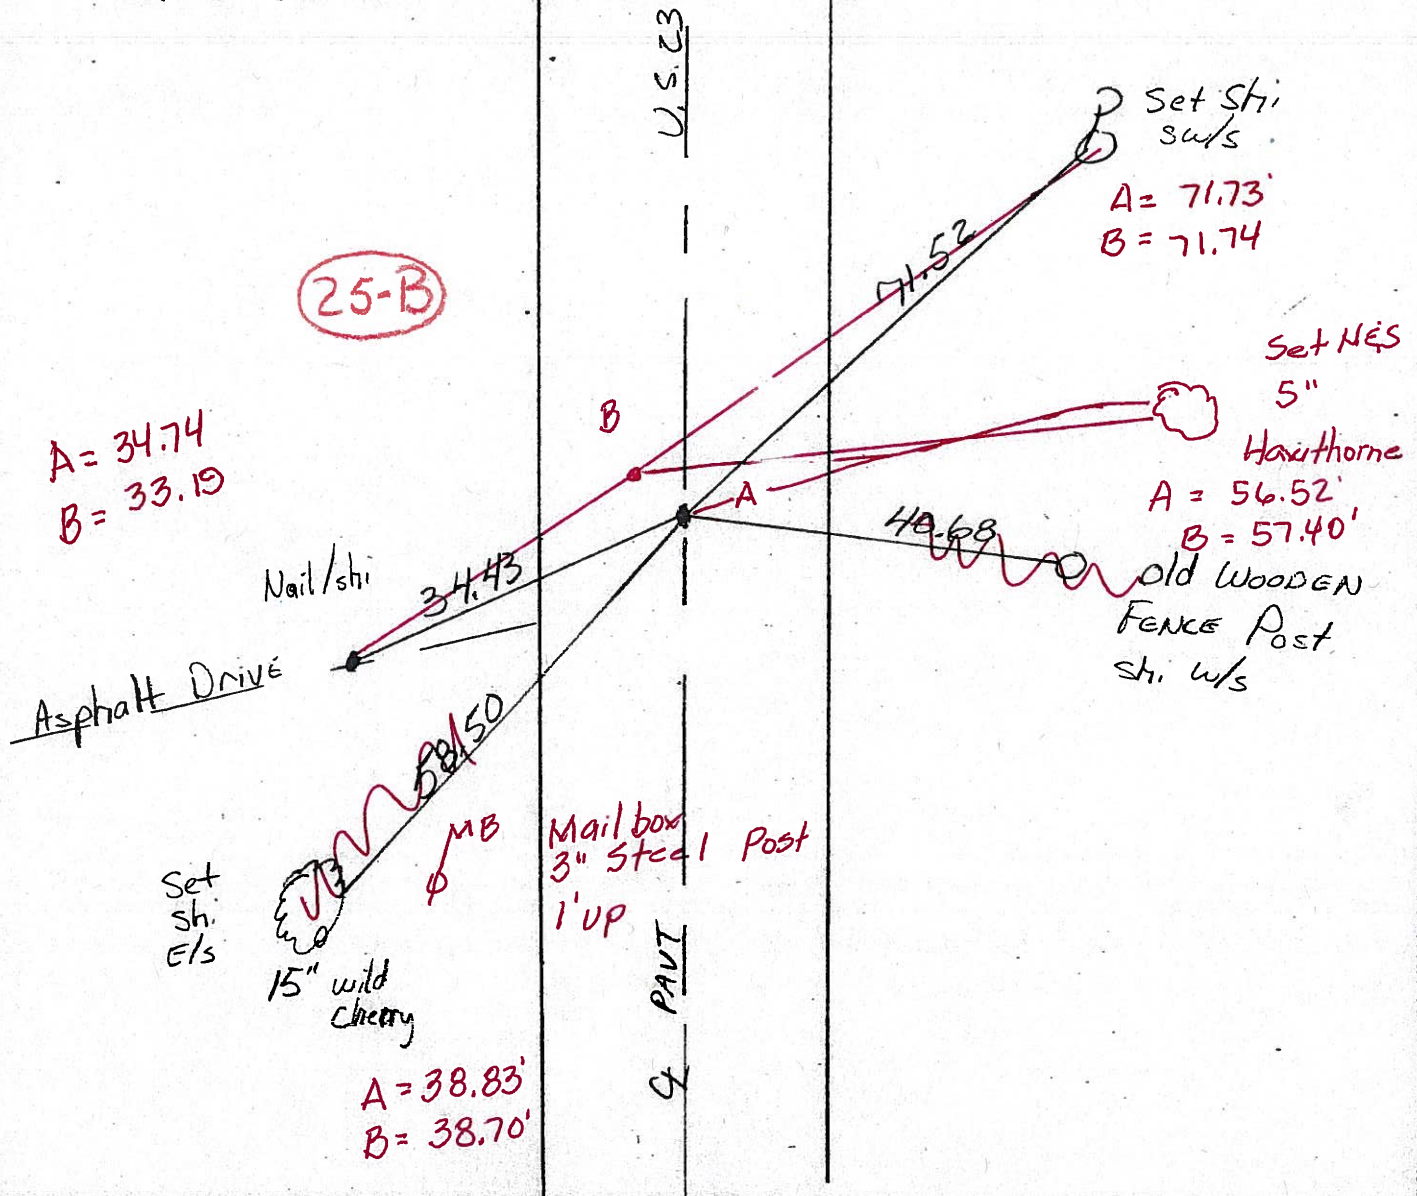 U.S. 23
Set Shi
sw/s
A = 71.73'
B = 71.74
71.52
25-B
Set N&S
5"
Hawthorne
A = 56.52'
B = 57.40'
B
A = 34.74
B = 33.19
A
48.68
Nail/shi
34.43
Old WOODEN
FENCE Post
shi w/s
Asphalt Drive
58.50
MB
Mailbox
3" Steel Post
1' up
Set
shi
E/s
15" wild
cherry
℄ PAVT
A = 38.83'
B = 38.70'